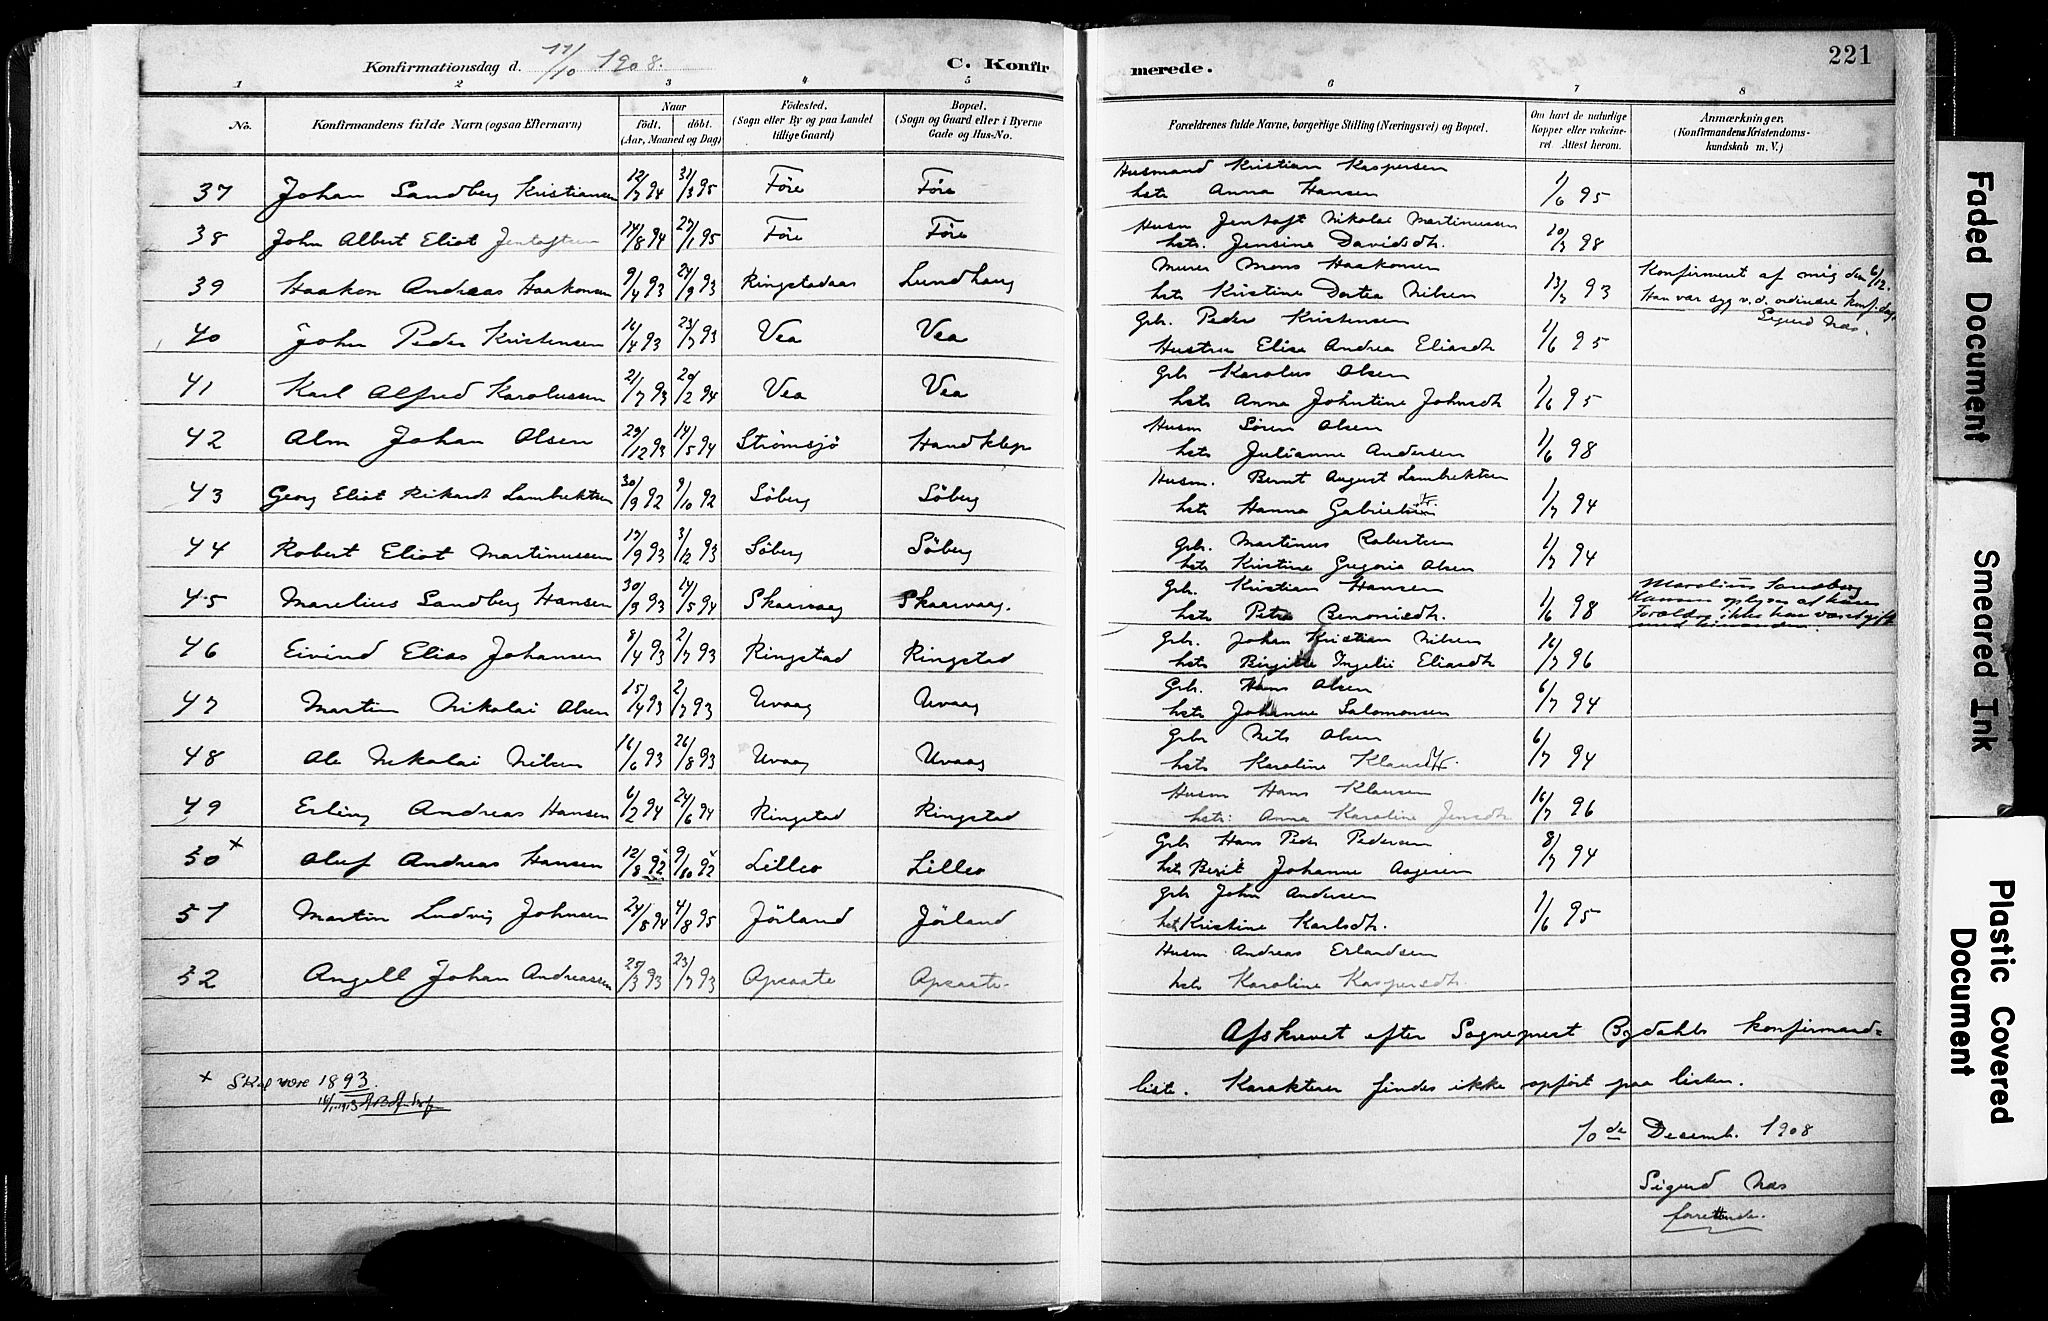 Konfirmationsdag d. 11/10 1908. C. Konfir merede. 221
1 2 3 4 5 6 7 8
No. Konfirmandens fulde Navn (ogsaa Efternavn) Naar födt. döbt. (Aar, Maaned og Dag) Födested. (Sogn eller By og paa Landet tillige Gaard) Bopæl. (Sogn og Gaard eller i Byerne Gade og Hus-No. Forældrenes fulde Navne, borgerlige Stilling (Næringsvei) og Bopæl. Om havt de naturlige Kopper eller vakcineret. Attest herom. Anmærkninger. (Konfirmandens Kristendomskundskab m. V.)
Husmand Kristian Kaspersen
37 Johan Sandberg Kristiansen 12/7 94 31/3 95 Före Före hstr Anna Hansen 1/6 95
Husm Jentoft Nikolai Martinussen
38 John Albert Eliot Jentoftsen 14/8 94 27/1 95 Före Före hstr. Jensine Davidsdtr. 10/7 98
Murer Mons Haakonsen
39 Haakon Andreas Haakonsen 9/4 93 24/9 93 Ringstadaas Lundhaug hstr Kristine Dortea Nilsen 13/7 93 Konfirmeret af mig den 6/12.
Han var syg v. d. ordinære konf.dag.
Sigurd Næs.
Grb. Peder Kristensen
40 John Peder Kristensen 16/4 93 23/7 93 Vea Vea Hustru Elise Andrea Eliasdtr 1/6 95
Grb Karolus Olsen
41 Karl Alfred Karolussen 21/7 93 20/2 94 Vea Vea hstr Anna Johntine Johnsdtr 1/6 95
Husm Sören Olsen
42 Alm Johan Olsen 29/12 93 14/5 94 Strömsjö Handklep hstr Julianne Andersen 1/6 98
Husm. Bernt August Lambrektsen
43 Georg Eliot Rikardt Lambrektsen 30/9 92 9/10 92 Söberg Söberg hstr Hanna 1/7 94
Grb. Martinus Robertsen
44 Robert Eliot Martinussen 17/9 93 3/12 93 Söberg Söberg hstr Kristine Gregoria Olsen 1/7 94
Grb. Kristian Hansen
45 Marelius Sandberg Hansen 30/9 93 14/5 94 Skaarvaag Skaarvaag. hstr Petra Benonisdtr. 1/6 98 Marelius Sandberg
Hansen oplyser at hans
Forældre ikke har været gift
med hinanden.
Grb. Johan Kristian Nilsen
46 Eivind Elias Johansen 8/4 93 2/7 93 Ringstad Ringstad hstr Birgitte Ingelii Eliasdtr 16/7 96
Grb. Hans Olsen
47 Martin Nikolai Olsen 15/4 93 2/7 93 Uvaag Uvaag hstr Johanne Salomonsen 6/7 94
Grb Nils Olsen
48 Ole Nikolai Nilsen 16/6 93 26/8 93 Uvaag Uvaag hstr Karoline Klausdtr. 6/7 94
Husm Hans Klausen
49 Erling Andreas Hansen 6/2 94 24/6 94 Ringstad Ringstad hstr: Anna Karoline Jensdtr 16/7 96
Grb Hans Peder Pedersen
50 x Oluf Andreas Hansen 12/8 92 9/10 92 Lilleö Lilleö hstr Berit Johanne Aagesen 8/7 94
Grb John Andersen
51 Martin Ludvig Johnsen 24/5 94 4/8 95 Jörland Jörland hstr Kristine Karlsdtr. 1/6 95
Husm Andreas Erlandsen
52 Angell Johan Andreassen 25/3 93 23/7 93 Apsaate Apsaate. hstr Karoline Kaspersdtr.
Afskrevet efter Sogneprest Bgdahls konfirmand=
liste. Karakterer findes ikke opfört paa listen.
x Skal være 1893.
10de Decemb. 1908
Sigurd Næs
forrettende.
Faded Document
Smeared Ink
Plastic Covered
Document